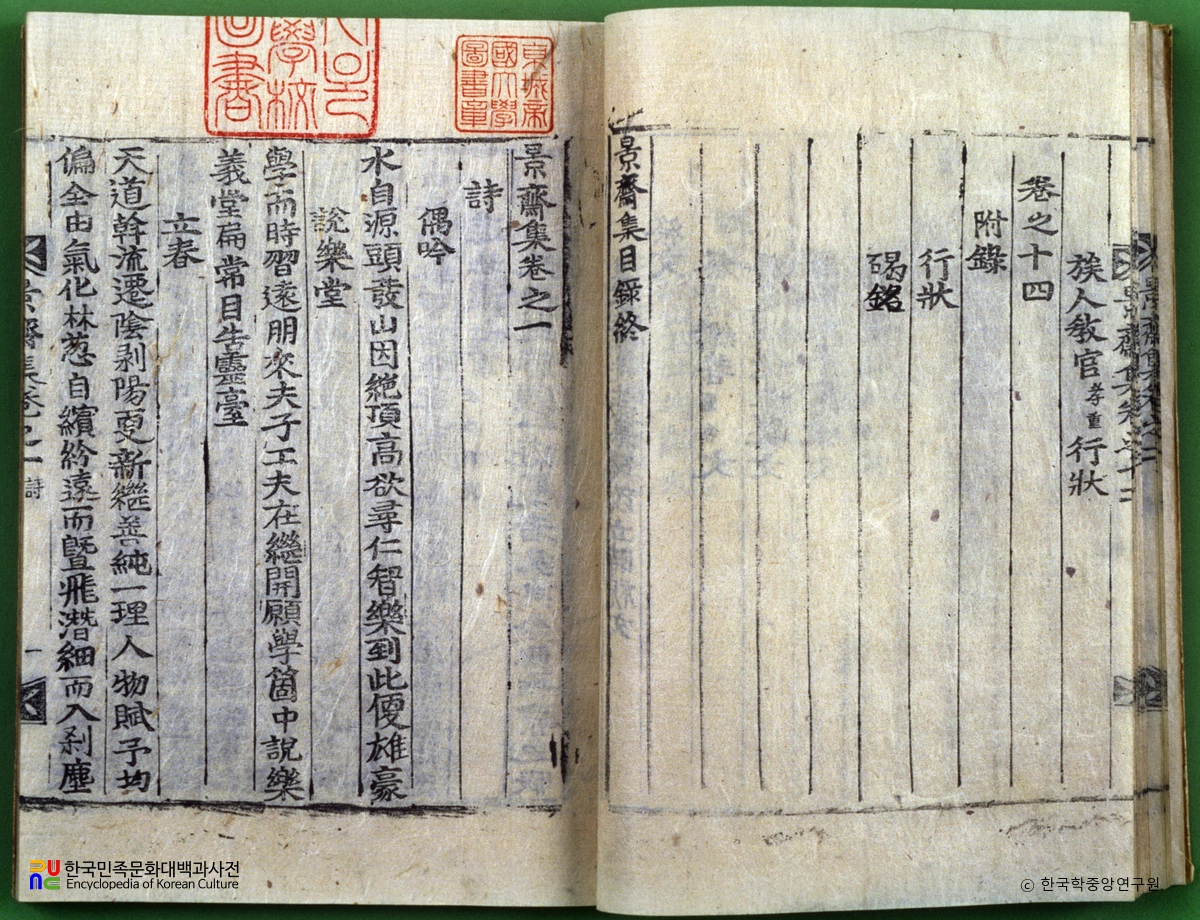 族人敎官孝重行狀
卷之十四
附錄
行狀
碣銘
景齋集目錄終
景齋集卷之一
詩
偶吟
水自源頭發山因絶頂高欲尋仁智樂到此便雄豪
說樂堂
學而時習遠朋來夫子工夫在繼開願學箇中說樂
義堂扁常目告靈臺
立春
天道斡流遷陰剥陽更新繼善純一理人物賦予均
偏全由氣化林葱自繽紛遠而曁飛潛細而入刹塵
景齋集卷之一 詩
一
東城帝
國大學
圖書章
學校
圖書
한국민족문화대백과사전
Encyclopedia of Korean Culture
ⓒ 한국학중앙연구원